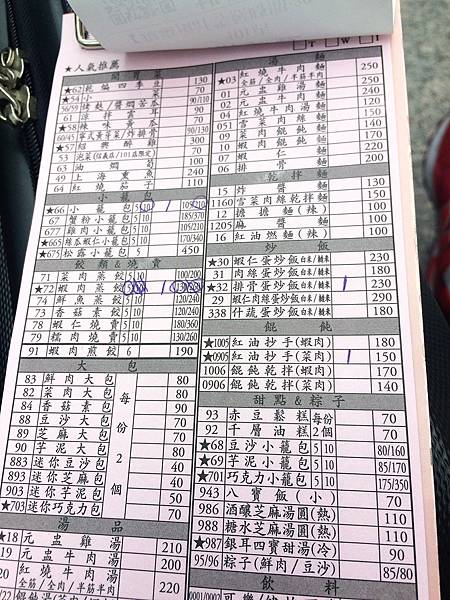 ★人氣推薦
開胃菜
★62 乾煸四季豆 130
★54
烤麩/醬燜苦瓜 90/110
61 涼拌雲耳 100
★58 辣味黃瓜 70
60/45 寧式黃芽菜/炸排骨 90/130
★57 紹興醉雞 300
53 泡菜(信義店/101店限定) 70
63 油燜筍 100
49 上海熏魚 240
64 紅燒茄子 110
小籠包
★66 小籠包 5 10 1 105/210
67 蟹粉小籠包 5 10 185/370
677 雞肉小籠包 5 10 105/210
★665 絲瓜蝦仁小籠包 5 10 170/340
★675 松露小籠包 5 10 450
餃類&燒賣
71 菜肉蒸餃 5 10 100/200
★72 蝦肉蒸餃 5 10 1
74 鮮魚蒸餃 5 10 120/240
73 香菇素餃 5 10 120/240
78 蝦仁燒賣 5 10 180/360
79 糯肉燒賣 5 10 130/260
91 蝦肉煎餃 6 190
大包
每份2個
83 鮮肉大包 80
82 菜肉大包 80
84 香菇素包 90
88 豆沙大包 70
89 芝麻大包 70
90 芋泥大包 80
883 迷你豆沙包 40
893 迷你芝麻包 40
903 迷你芋泥包 50
★703 迷你巧克力包 70
湯品
★18 元盅雞湯 210
19 元盅牛肉湯 200
20 紅燒牛肉湯
全筋/全肉/半筋半肉 220
湯麵
★03 紅燒牛肉麵
全筋/全肉/半筋半肉 250
01 元盅雞麵 240
02 元盅牛肉麵 240
04 紅燒牛肉湯麵 150
051 雪菜肉絲麵 150
09 菜肉餛飩麵 160
10 蝦肉餛飩麵 180
07 蝦仁麵 200
06 排骨麵 200
乾拌麵
15 炸醬麵 130
1160 雪菜肉絲乾拌麵 150
12 擔擔麵(辣) 100
1205 麻醬麵 100
16 紅油燃麵(辣) 100
炒飯
★30 蝦仁蛋炒飯 白米/糙米 230
31 肉絲蛋炒飯 白米/糙米 180
★32 排骨蛋炒飯 白米/糙米 1 230
29 蝦仁肉絲蛋炒飯 白米/糙米 290
338 什蔬蛋炒飯 白米/糙米 190
餛飩
★1005 紅油抄手(蝦肉) 180
★0905 紅油抄手(菜肉) 1 150
1006 餛飩乾拌(蝦肉) 170
0906 餛飩乾拌(菜肉) 140
甜點&粽子
93 赤豆鬆糕 每份 70
92 千層油糕 2個 70
★68 豆沙小籠包 5 10 80/160
★69 芋泥小籠包 5 10 85/170
★701 巧克力小籠包 5 10 175/350
943 八寶飯(小) 70
986 酒釀芝麻湯圓(熱) 110
988 糖水芝麻湯圓(熱) 110
★987 銀耳四寶甜湯(冷) 90
95/96 粽子(鮮肉/豆沙) 85/80
飲料